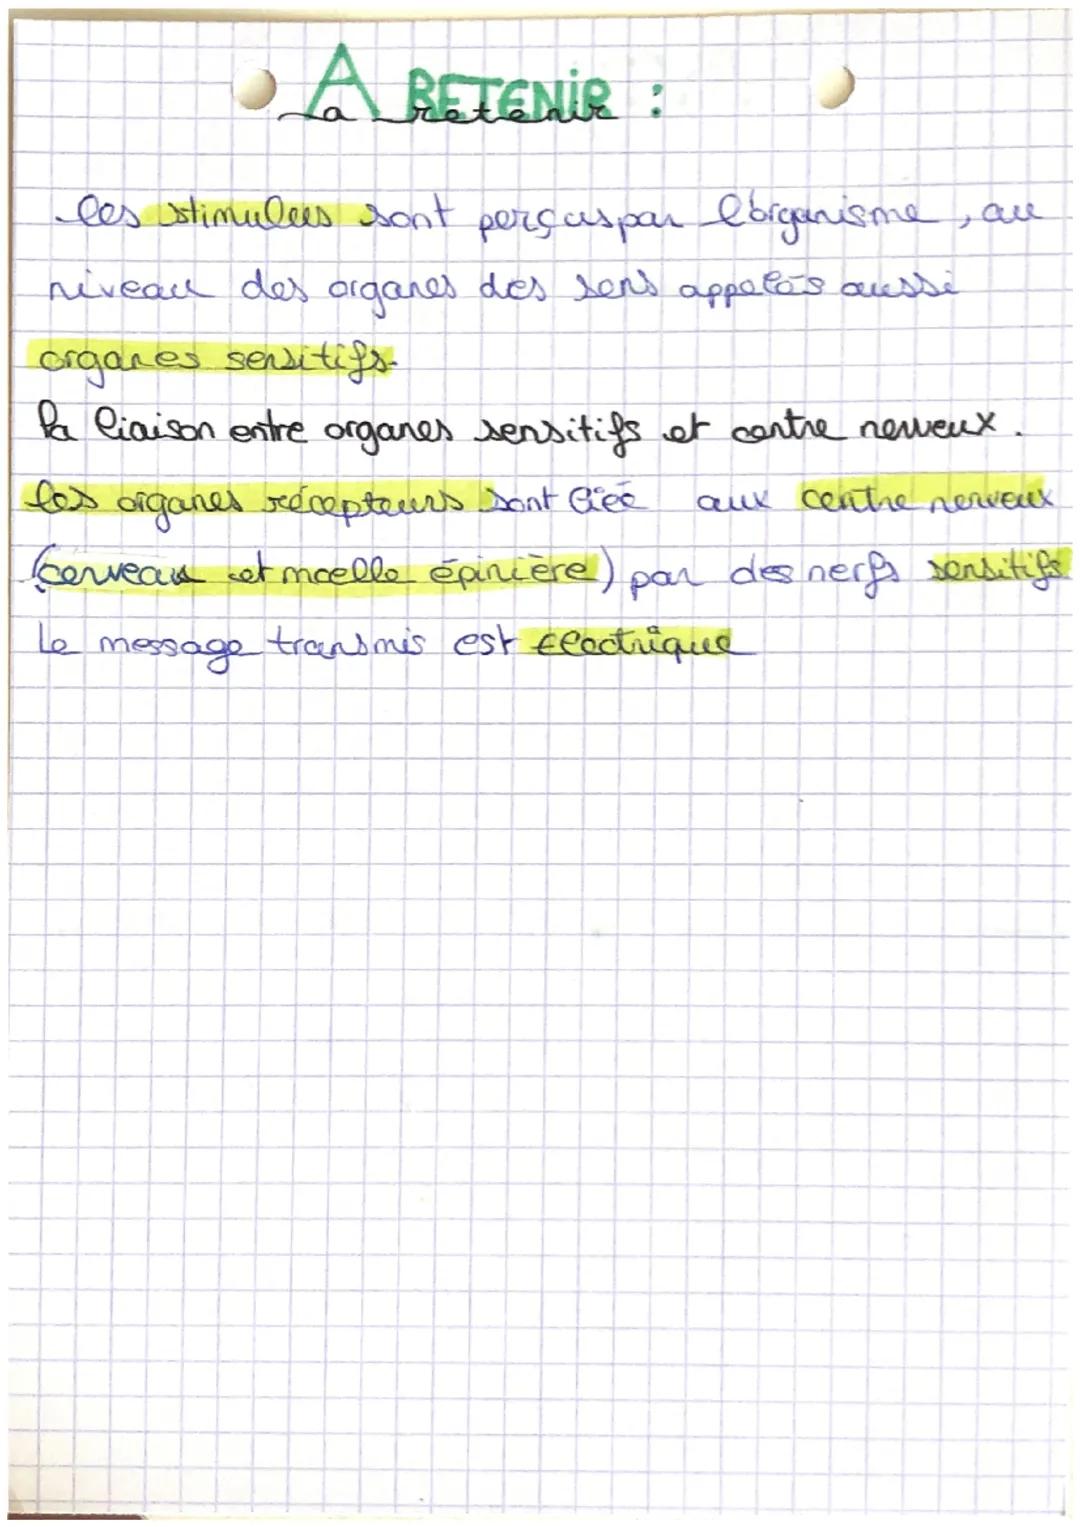 A RETENIR :
a retenir
les stimulus sont perçus par l'organisme, au
niveau des organes des sens appelés aussi
organes sensitifs.
la liaison entre organes sensitifs et centre nerveux.
les organes récepteurs sont liée aux centre nerveux
(cerveau et moelle épinière) par des nerfs sensitifs
Le message transmis est électrique